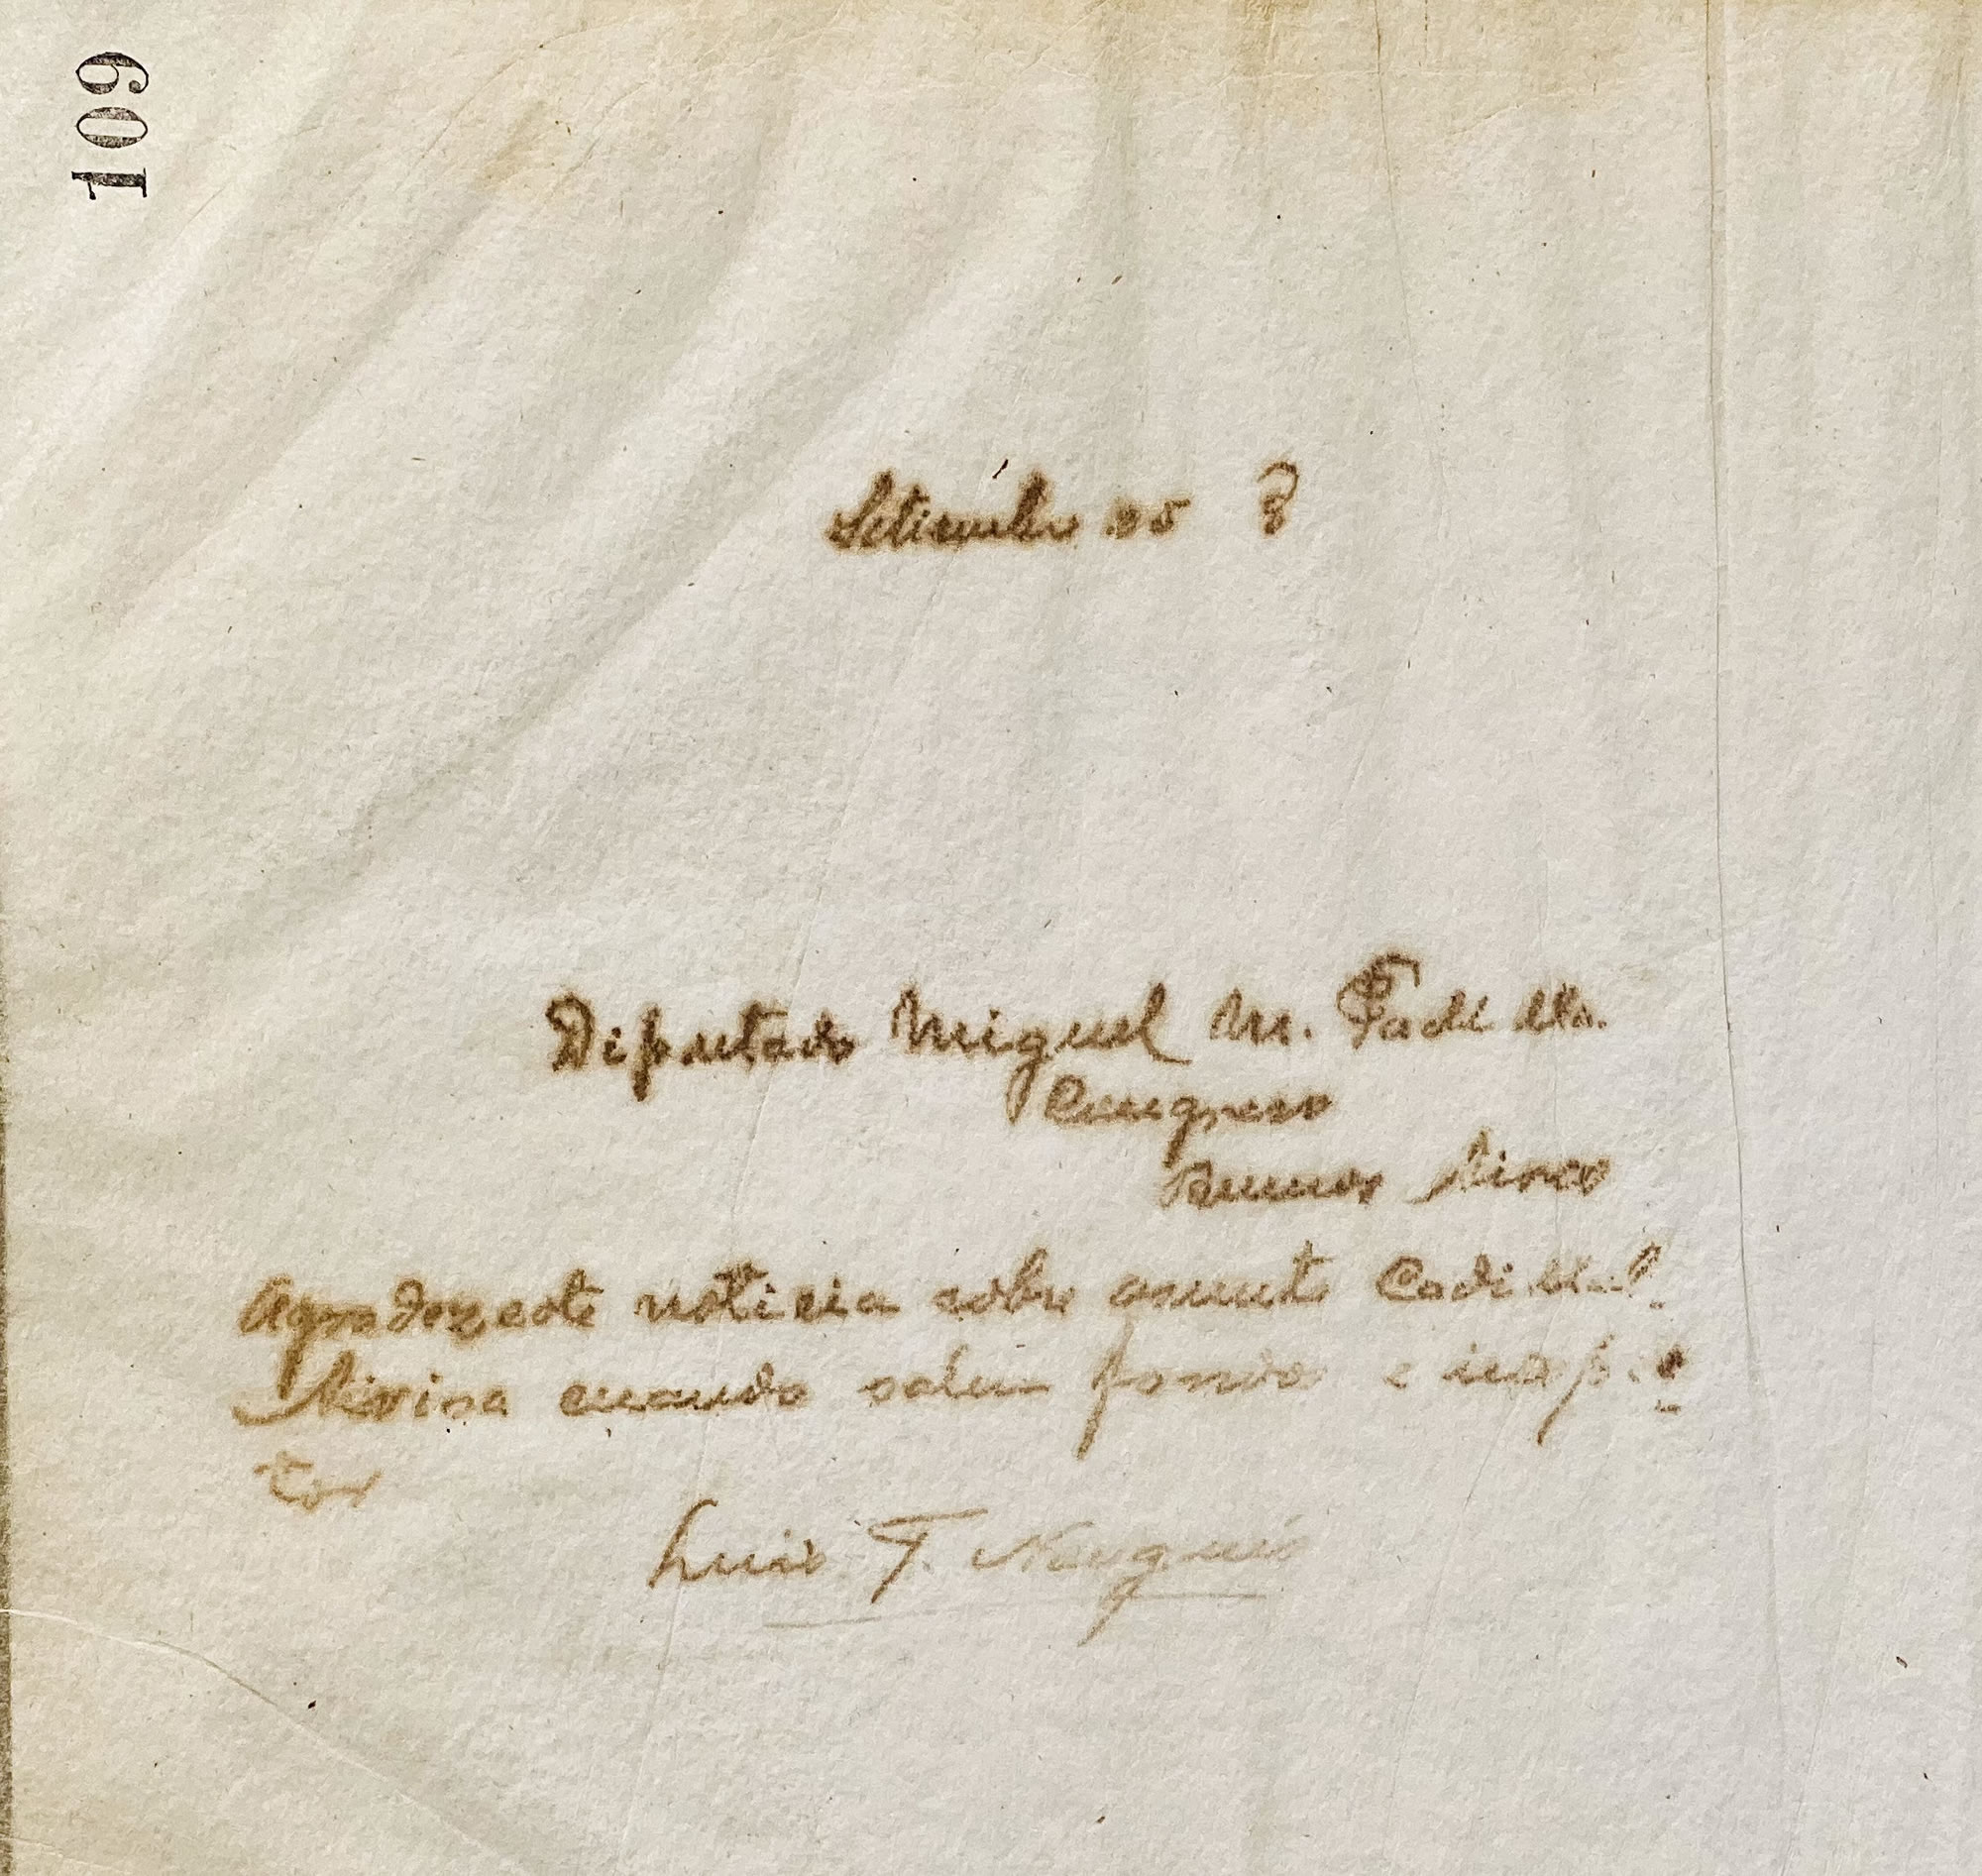 109
Setiembre 25 8
Diputado Miguel M. Padilla.
Congreso
Buenos Aires
Agradezcote noticia sobre asunto Cadillal.
Avisa cuando salen fondos e inspec
tor
Luis F. Nougués